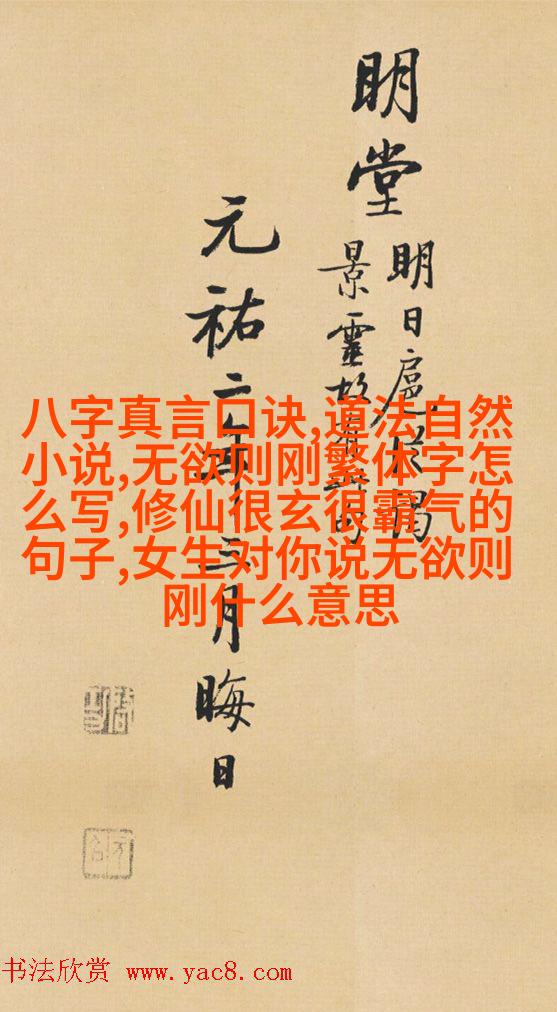 明堂
明日扈
景靈故
元祐二年三月晦日
八字真言口诀,道法自然
小说,无欲则刚繁体字怎
么写,修仙很玄很霸气的
句子,女生对你说无欲则
刚什么意思
书法欣赏 www.yac8.com